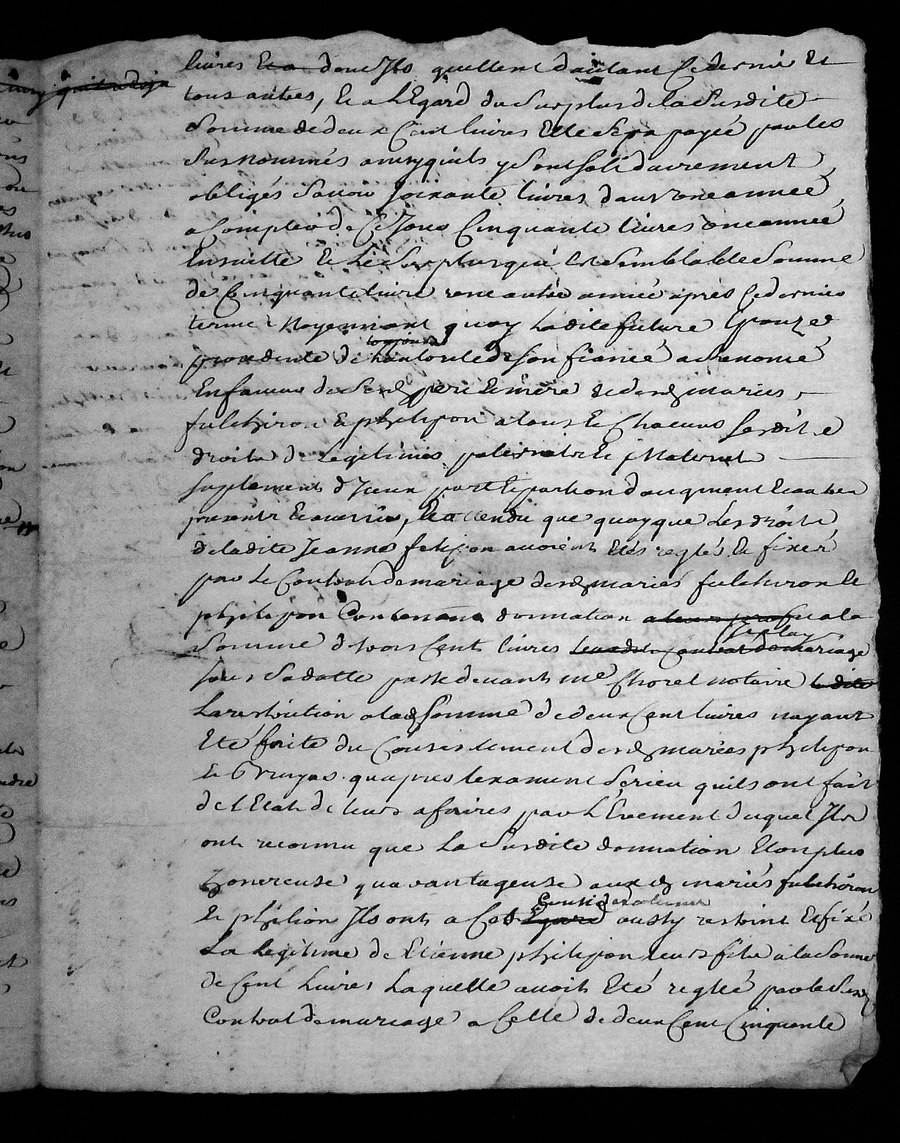 livres et a donc Ils quittent d'autant ce dernié Et
tous autres, Et a l'Egard du Surplus de la Susdite
Somme de deux Cent livres Elle Sera payée par les
Susnommés ainsy quils y sont solidairement
obligés Savoir Soixante livres dans une année
a Compter de Ce Jour Cinquante livres une année
Ensuitte Et Le Surplus qui Est Semblable Somme
de Cinquante livres une autre année après Ce dernier
terme Moyennant quoy Ladite future Epouze
procedente de l'autorité de Son fiancé a Renoncé
En faveur de Sesdz pere Et mère Et desdz mariés
fulchiron Et philipon a tous Et Chacuns Ses dits
droits de Legitimes paternel Et Maternel
Suplement d'Iceux part Et portion d'augment Echutes
presents Et avenir, Et attendu que quoyque Les droits
de ladite Jeanne felipon avoient Etés reglés Et fixés
par Le Contrat de mariage desdz mariés fulchiron Et
philipon Contenant donnation a la
Somme de trois Cent livres
pour Sa dotte passé devant me Chorel notaire ladite
La restriction a lad Somme de deux Cent livres nayant
Eté faite du Consentement desdz mariés philipon
Et qu'apres lexament Serieu quils ont fait
de l'Etat de leurs afaires par L'Evement duquel Ils
ont reconnu que La Susdite donnation Etoit plus
honereuse qu'avantageuse aux dz mariés fulchiron
Et philion Ils ont a Cet Egard Consideration aussy restraint Et fixé
La Legitime de Etienne philipon leur fils a la Somme
de Cent Livres Laquelle avoit Eté reglée par le Susdz
Contrat de mariage a Celle de deux Cent Cinquante